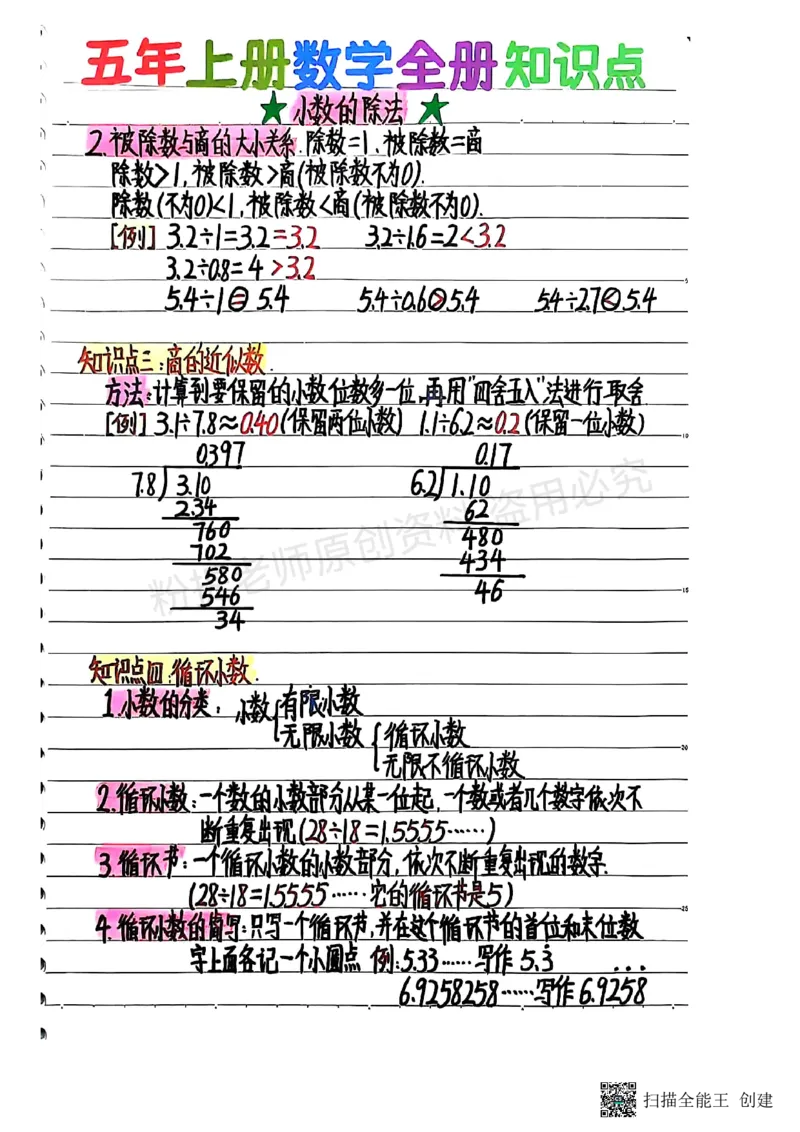 五年上册数学全册知识点
★小数的除法★
2.被除数与商的大小关系.除数=1、被除数=商
除数>1,被除数>商(被除数不为0).
除数(不为0)<1,被除数<商(被除数不为0).
[例] 3.2÷1=3.2=3.2 3.2÷1.6=2<3.2
3.2÷0.8=4>3.2
5.4÷1=5.4 5.4÷0.6>5.4 5.4÷2.7<5.4
知识点三:商的近似数.
方法:计算到要保留的小数位数多一位,再用"四舍五入"法进行取舍
[例] 3.1÷7.8≈0.40(保留两位小数) 1.1÷6.2≈0.2(保留一位小数)
0.397 0.17
7.8)3.10 6.2)1.10
2.34 62
760 480
702 434
580 46
546
34
知识点四:循环小数.
1.小数的分类: 小数{有限小数
无限小数{循环小数
无限不循环小数
2.循环小数:一个数的小数部分从某一位起,一个数或者几个数字依次不
断重复出现(28÷18=1.5555……)
3.循环节:一个循环小数的小数部分,依次不断重复出现的数字.
(28÷18=1.5555……它的循环节是5)
4.循环小数的简写:只写一个循环节,并在这个循环节的首位和末位数
字上面各记一个小圆点 例:5.33……写作5.3̇
6.9258258……写作6.9̇25̇8̇
粉 老师原创资料 盗用必究
扫描全能王 创建